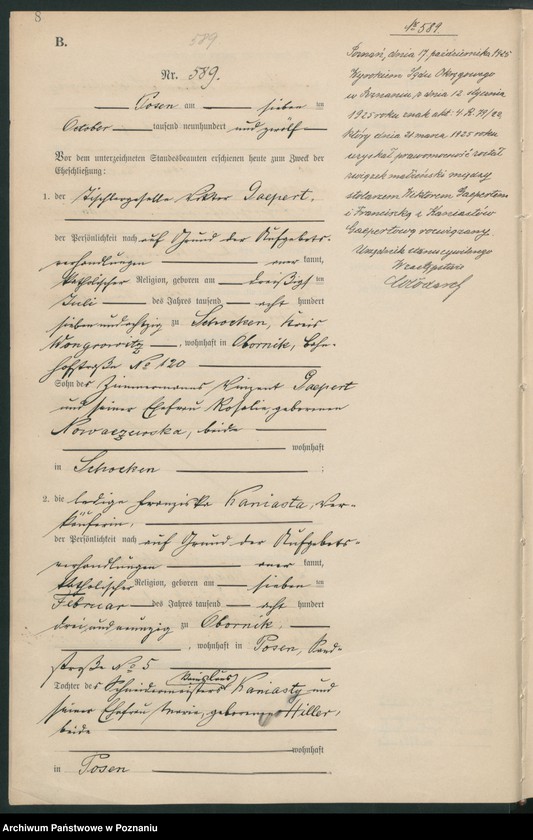 8
B.
589
Nr. 589.
Posen am sieben ten
October tausend neunhundert und zwölf
Vor dem unterzeichneten Standesbeamten erschienen heute zum Zweck der
Eheschließung:
1. der Tischlergeselle Viktor Gaepert,
der Persönlichkeit nach auf Grund der Aufgebots-
verhandlungen aner kannt,
katholischer Religion, geboren am dreißigsten
Juli des Jahres tausend acht hundert
siebenundachtzig zu Schocken, Kreis
Wongrowitz, wohnhaft in Obornik, Bahn-
hofstraße No 120
Sohn des Zimmermanns Vinzent Gaepert
und seiner Ehefrau Rosalie, geborenen
Nowaczewska, beide
wohnhaft
in Schocken ;
2. die ledige Franziska Kaniasta, Ver-
käuferin,
der Persönlichkeit nach auf Grund der Aufgebots-
verhandlungen aner kannt,
katholischer Religion, geboren am sieben ten
Februar des Jahres tausend acht hundert
drei und neunzig zu Obornik,
wohnhaft in Posen, Sand-
straße No 5
Tochter des Schneidermeisters Kaniasty und
seiner Ehefrau Marie, geborenen Hiller,
beide
wohnhaft
in Posen
No 589.
Poznań, dnia 17 października 1925
Wyrokiem Sądu Okręgowego
w Poznaniu z dnia 12 stycznia
1925 roku znak akt: 4. R.
który dnia 21 marca 1925 roku
uzyskał prawomocność został
związek małżeński między
stolarzem Wiktorem Gaepertem
i Franciszką z Kaniastów
Gaepertową rozwiązany.
Urzędnik stanu cywilnego
W zastępstwie
Archiwum Państwowe w Poznaniu